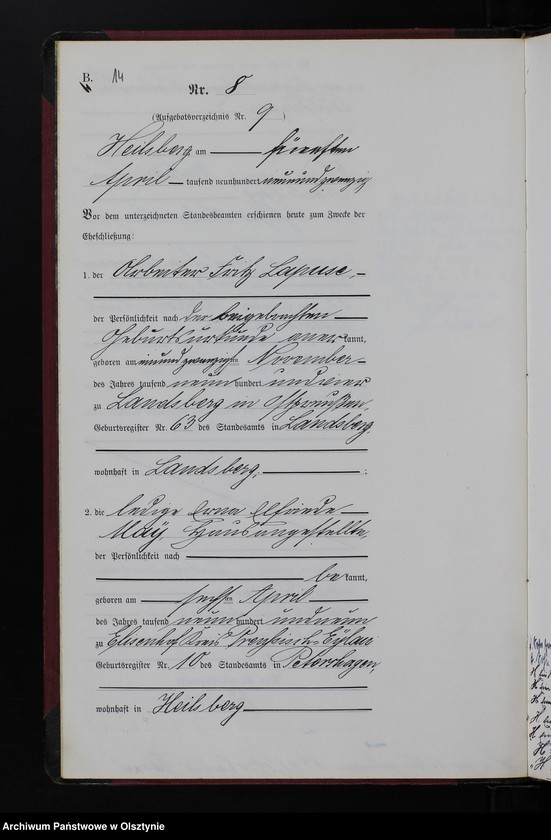 B. 14
Nr. 8
(Aufgebotsverzeichnis Nr. 9)
Heilsberg am fünften
April tausend neunhundert neunundzwanzig
Vor dem unterzeichneten Standesbeamten erschienen heute zum Zwecke der
Eheschließung:
1. der Arbeiter Fritz Lapuse,
der Persönlichkeit nach der beigebrachten
Geburtsurkunde anerkannt,
geboren am einundzwanzigsten November
des Jahres tausend neunhundert und vier
zu Landsberg in Ostpreußen,
Geburtsregister Nr. 63 des Standesamts in Landsberg,
wohnhaft in Landsberg;
2. die ledige Erna Elfriede
May Hausangestellte,
der Persönlichkeit nach
bekannt,
geboren am sechsten April
des Jahres tausend neunhundert und neun
zu Elisenhof Kreis Preußisch Eylau
Geburtsregister Nr. 10 des Standesamts in Petershagen,
wohnhaft in Heilsberg
Archiwum Państwowe w Olsztynie